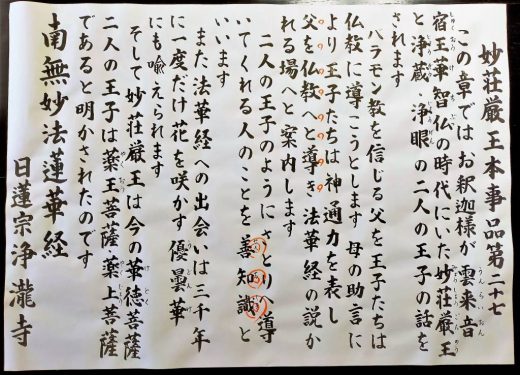 妙荘厳王本事品第二十七
この章ではお釈迦様が雲来音
宿王華智仏の時代にいた妙荘厳王
と浄蔵 浄眼の二人の王子の話を
されます
バラモン教を信じる父を王子たちは
仏教に導こうとします 母の助言に
より王子たちは神通力を表し
父を仏教へと導き法華経の説か
れる場へと案内します
二人の王子のようにさとりの導
いてくれる人のことを善知識と
いいます
また法華経への出会いは三千年
に一度だけ花を咲かす優曇華
にも喩えられます
そして妙荘厳王は今の華徳菩薩
二人の王子は薬王菩薩薬上菩薩
であると明かされたのです
南無妙法蓮華経
日蓮宗浄瀧寺